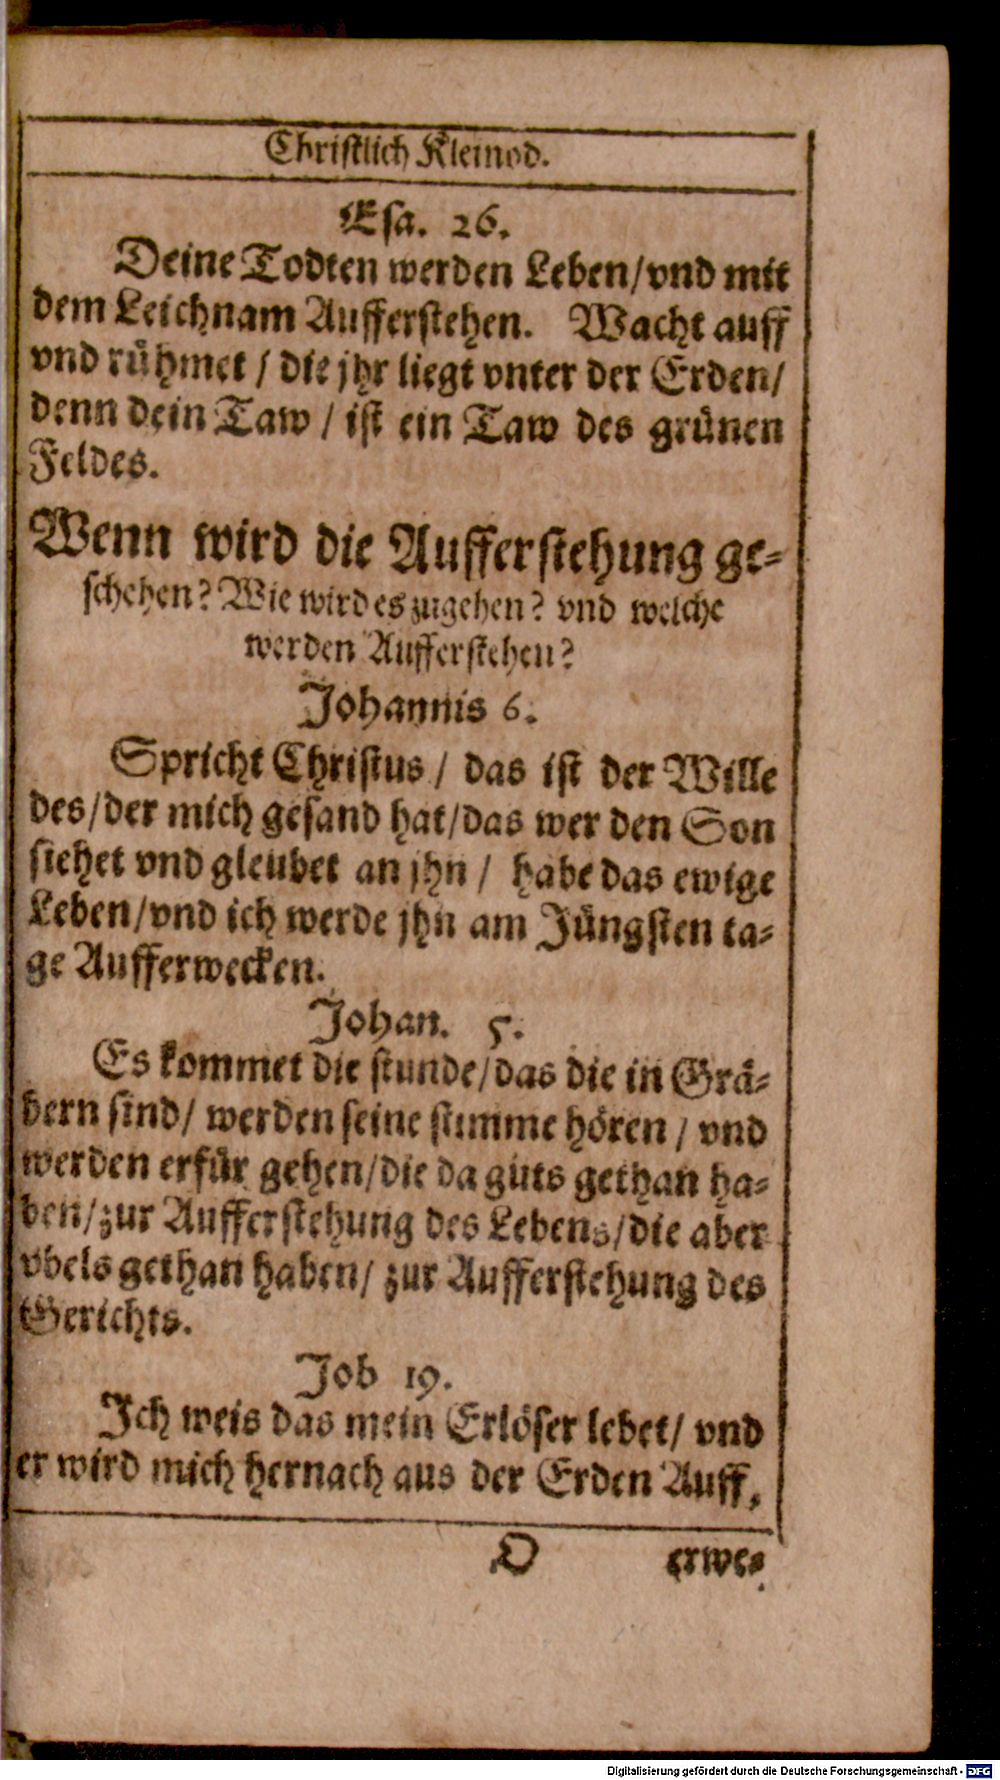 Christlich Kleinod.
Esa. 26.
Deine Todten werden Leben/vnd mit
dem Leichnam Aufferstehen. Wacht auff
vnd rühmet / die jhr liegt vnter der Erden/
denn dein Taw / ist ein Taw des grünen
Feldes.
Wenn wird die Aufferstehung ge-
schehen? Wie wird es zugehen? vnd welche
werden Aufferstehen?
Johannis 6.
Spricht Christus / das ist der Wille
des/der mich gesand hat/das wer den Son
siehet vnd gleubet an jhn / habe das ewige
Leben/vnd ich werde jhn am Jüngsten ta-
ge Aufferwecken.
Johan. 5.
Es kommet die stunde/das die in Grä-
bern sind/ werden seine stimme hören / vnd
werden erfür gehen/die da guts gethan ha-
ben/zur Aufferstehung des Lebens/die aber
vbels gethan haben/ zur Aufferstehung des
Gerichts.
Job 19.
Ich weis das mein Erlöser lebet/ vnd
er wird mich hernach aus der Erden Auff,
O erwe-
Digitalisierung gefördert durch die Deutsche Forschungsgemeinschaft - DFG